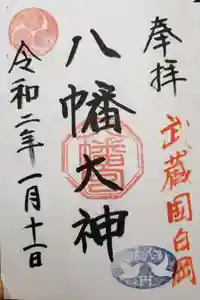 奉拝
武蔵国白岡
八幡大神
令和二年一月十一日